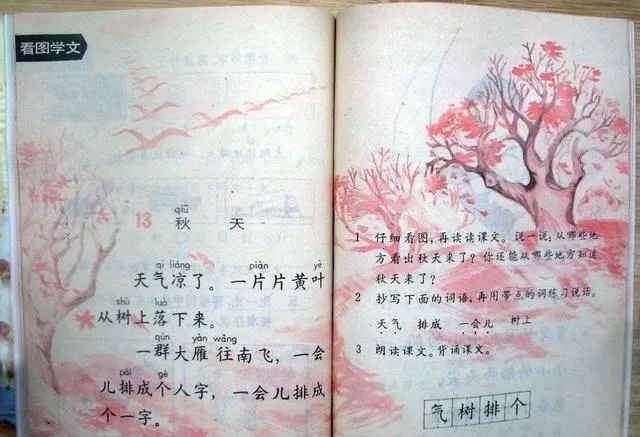 看图学文
qiū
13 秋 天
qì liáng piàn yè
天气凉了。一片片黄叶
shù luò
从树上落下来。
qún yàn wǎng
一群大雁往南飞，一会
pái gè
儿排成个人字，一会儿排成
个一字。
1 仔细看图，再读读课文。说一说：从哪些地
方看出秋天来了？你还能从哪些地方知道
秋天来了？
2 抄写下面的词语，再用带点的词练习说话。
天气 排成 一会儿 树上
3 朗读课文。背诵课文。
气 树 排 个